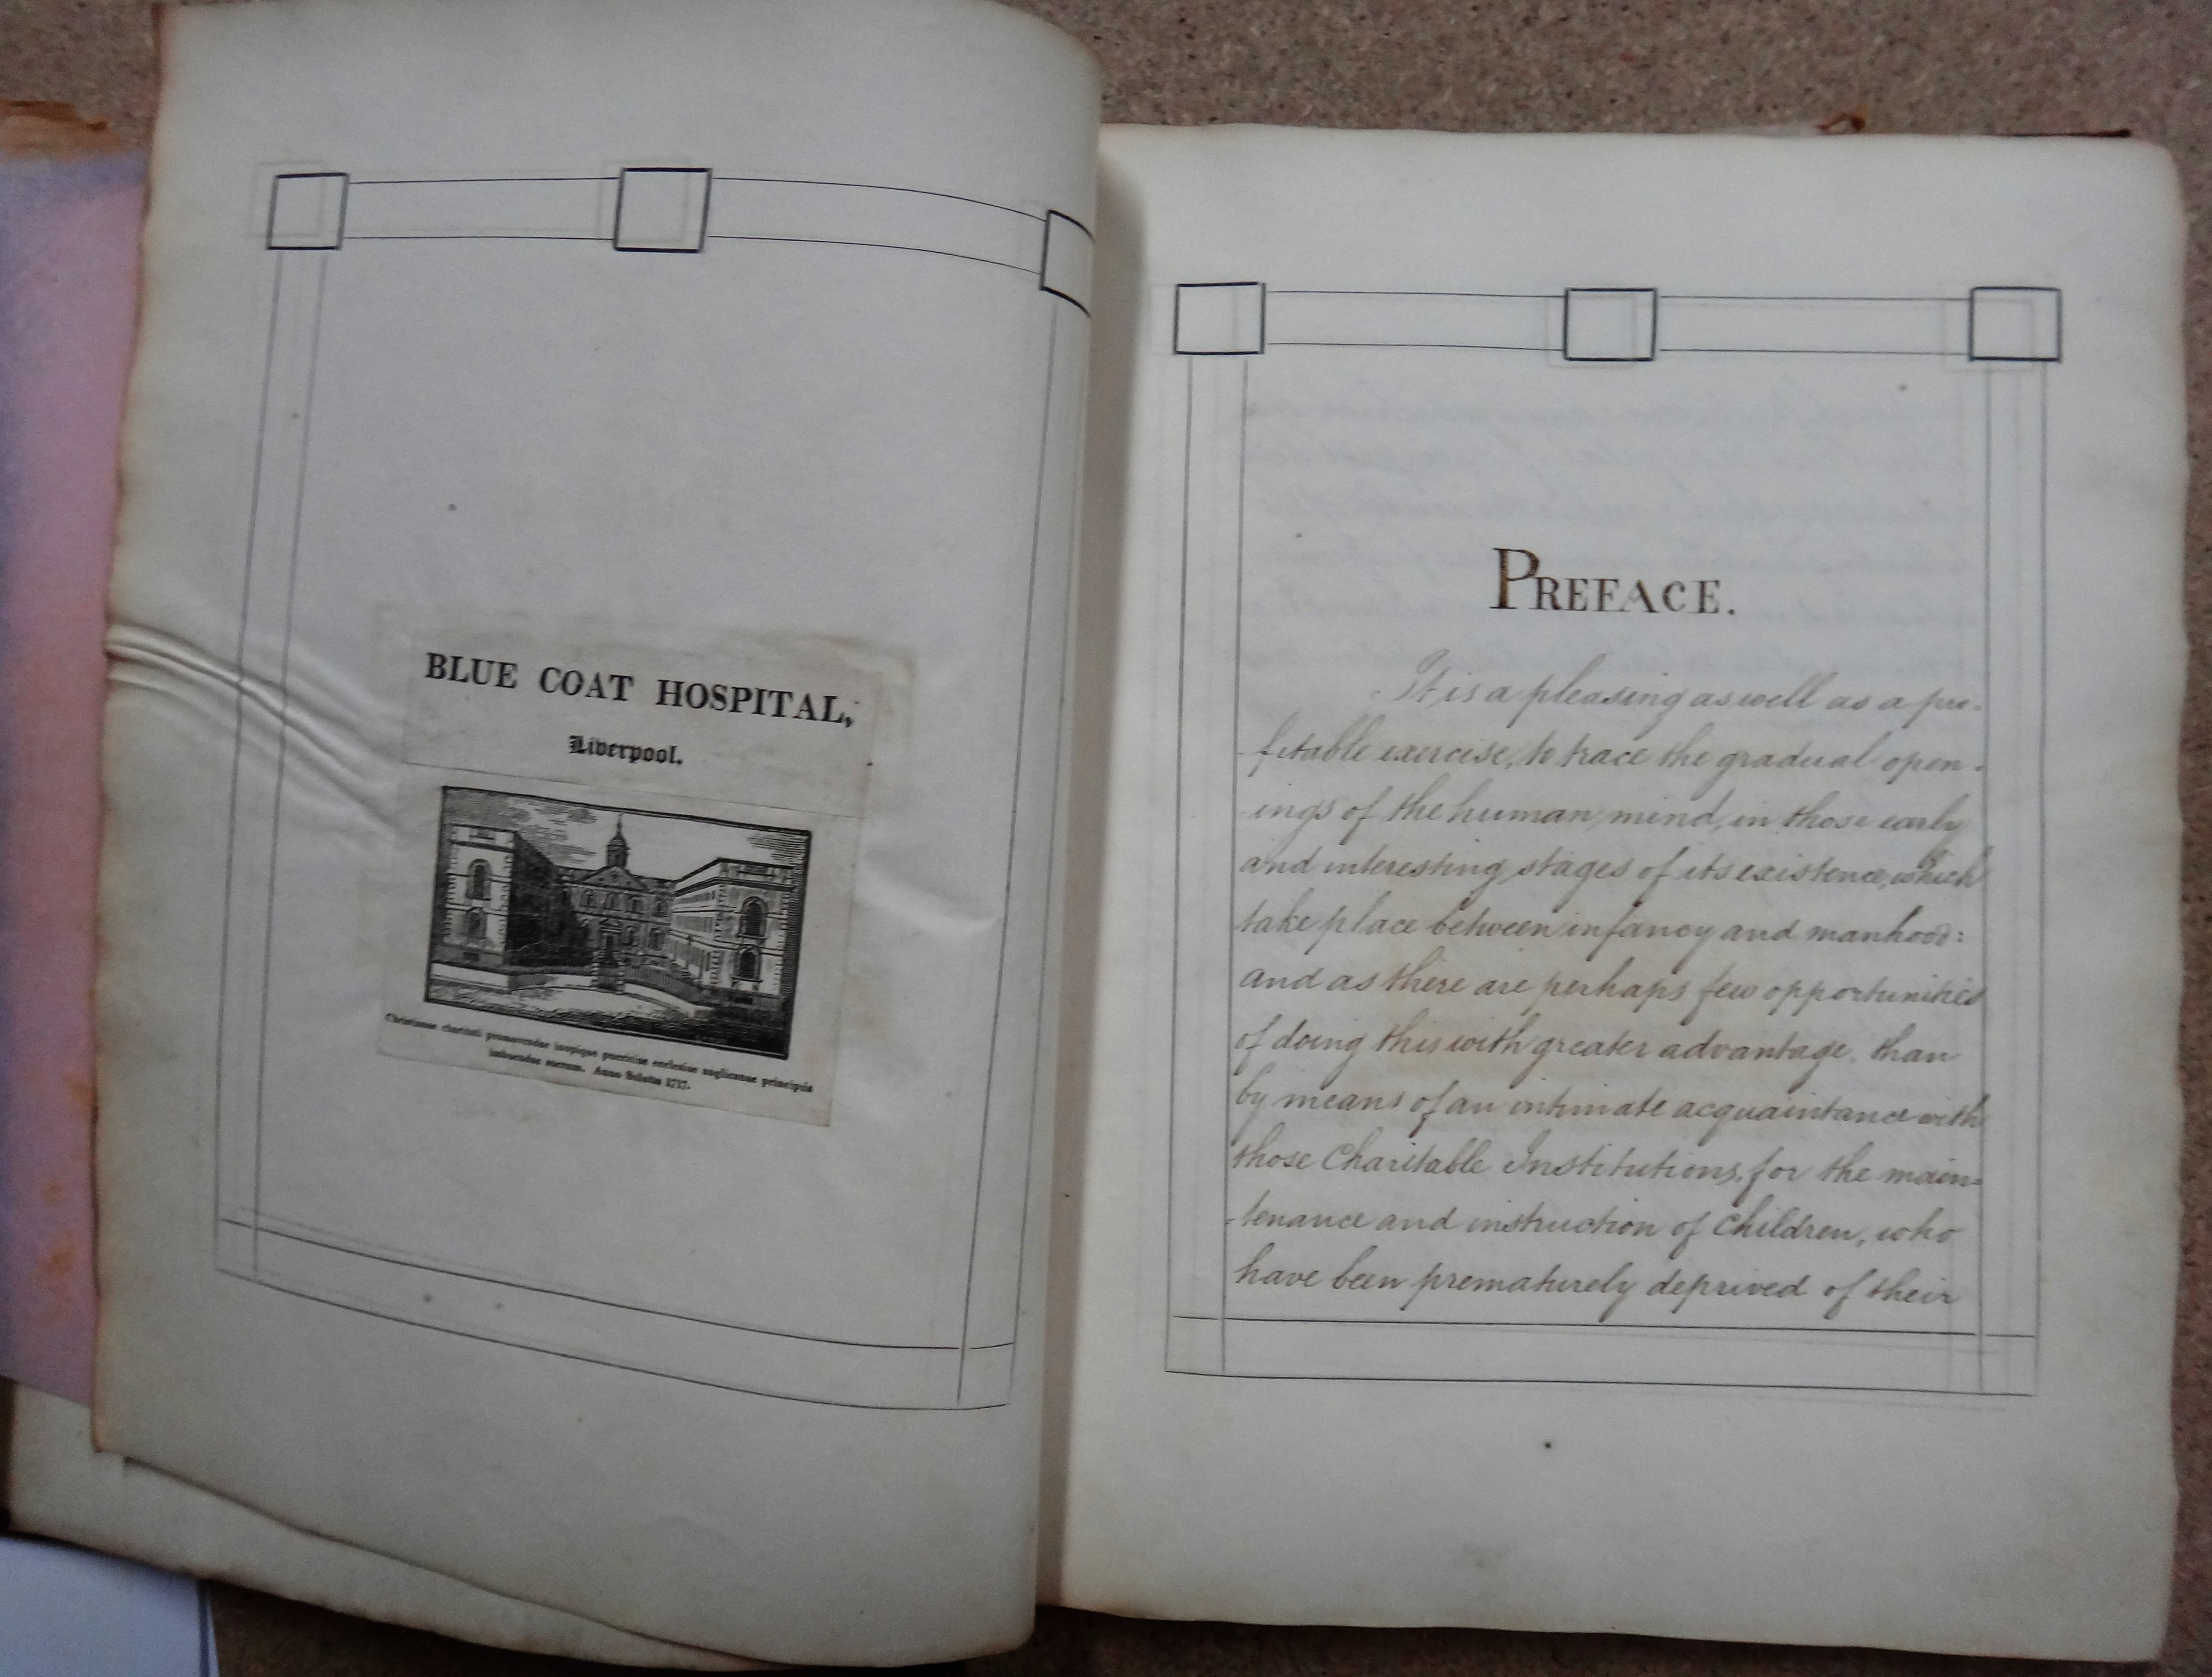 BLUE COAT HOSPITAL,
Liverpool.
Christianae charitati promovendae inopique pueritiae ecclesiae anglicanae principiis
imbuendae sacrum. Anno Salutis 1717.
PREFACE.
It is a pleasing as well as a pro-
-fitable exercise, to trace the gradual open-
-ings of the human mind, in those early
and interesting stages of its existence, which
take place between infancy and manhood:
and as there are perhaps few opportunities
of doing this with greater advantage, than
by means of an intimate acquaintance with
those Charitable Institutions, for the main-
-tenance and instruction of Children, who
have been prematurely deprived of their